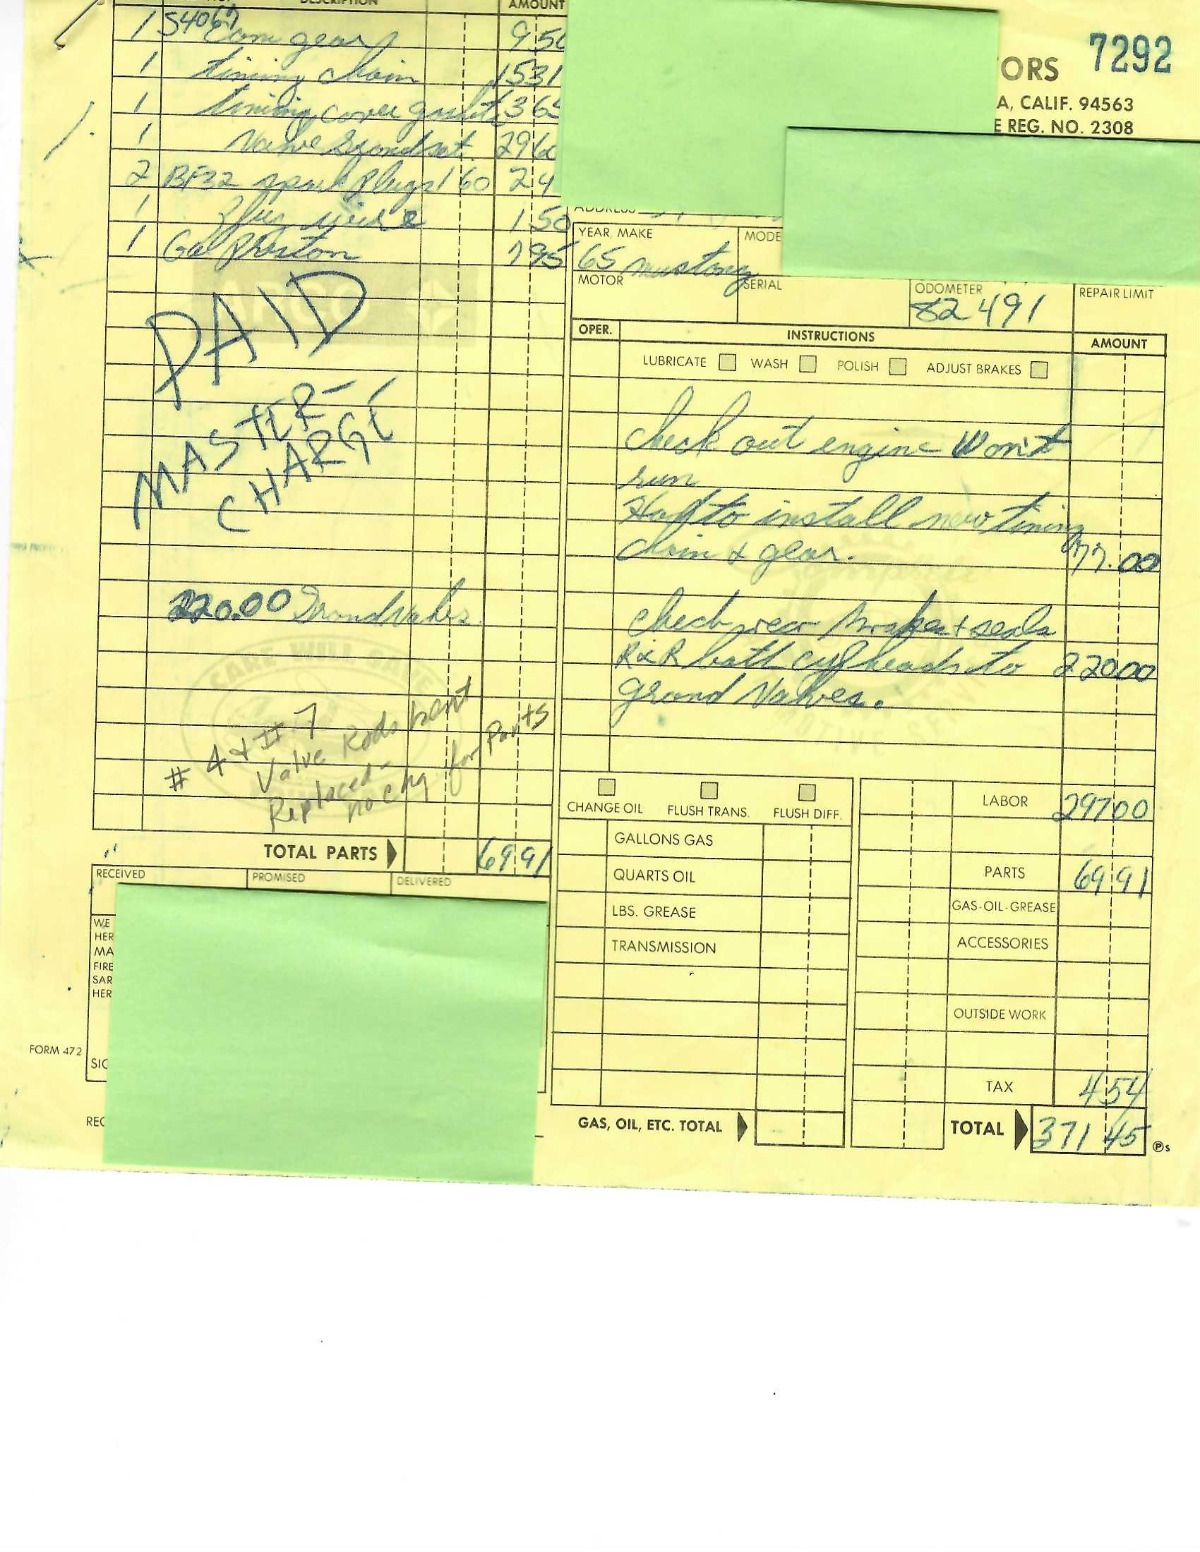 DESCRIPTION AMOUNT
1 S4067 Cam gear 950
1 timing chain 1531
1 timing cover 365
1 Valve Grand set 2960
2 BF32 spark plugs 160 24
1 wire 150
1 Gal Preston 795
PAID
MASTER-
CHARGE
220.00 Grand Valves
# 4 & # 7
Valve Rods bent
Replaced-
no chg for Parts
TOTAL PARTS 69 91
RECEIVED PROMISED DELIVERED
WE
HER
MA
FIRE
SAR
HER
FORM 472
SIG
REC
7292
ORS
A, CALIF. 94563
E REG. NO. 2308
ADDRESS
YEAR, MAKE MODE
65 mustang
MOTOR SERIAL ODOMETER REPAIR LIMIT
82 491
OPER. INSTRUCTIONS AMOUNT
LUBRICATE WASH POLISH ADJUST BRAKES
check out engine Won't
run
Had to install new timing
chain & gear. 77.00
check rear Brakes + seals
R&R both cyl heads to 22000
grand Valves.
CHANGE OIL FLUSH TRANS. FLUSH DIFF.
GALLONS GAS
QUARTS OIL
LBS. GREASE
TRANSMISSION
GAS, OIL, ETC. TOTAL
LABOR 297 00
PARTS 69 91
GAS-OIL-GREASE
ACCESSORIES
OUTSIDE WORK
TAX 4 54
TOTAL 371 45